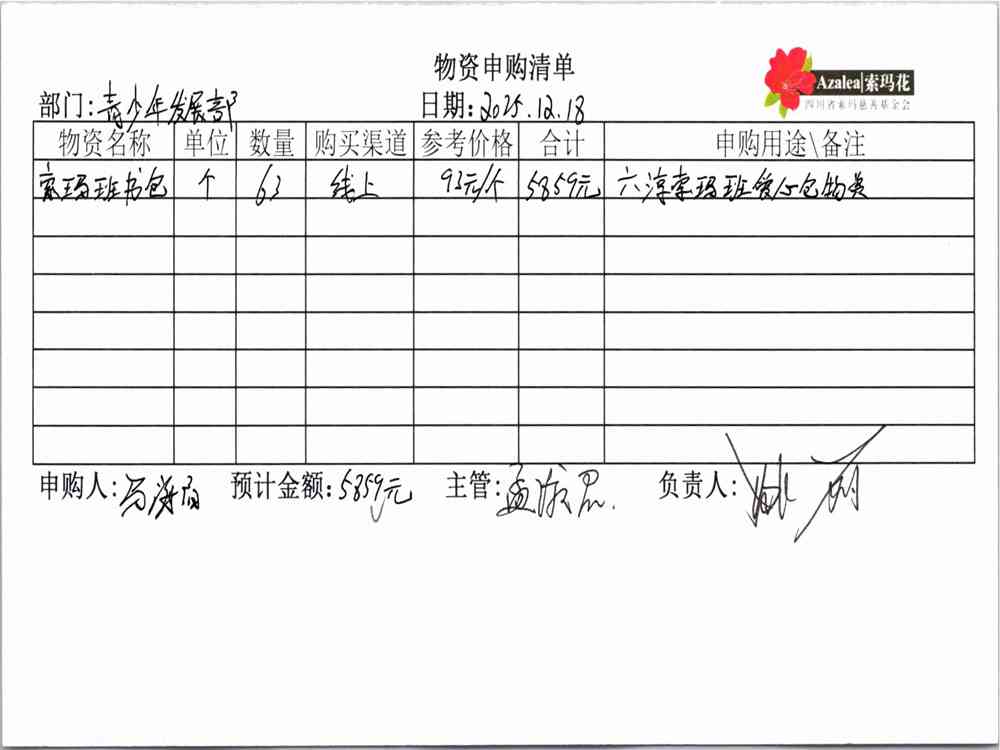 物资申购清单
Azalea|索玛花
四川省索玛慈善基金会
部门:青少年发展部 日期:2025.12.18
物资名称 单位 数量 购买渠道 参考价格 合计 申购用途\备注
索玛班书包 个 63 线上 93元/个 5859元 六淳索玛班爱心包物资
申购人: 预计金额:5859元 主管: 负责人: